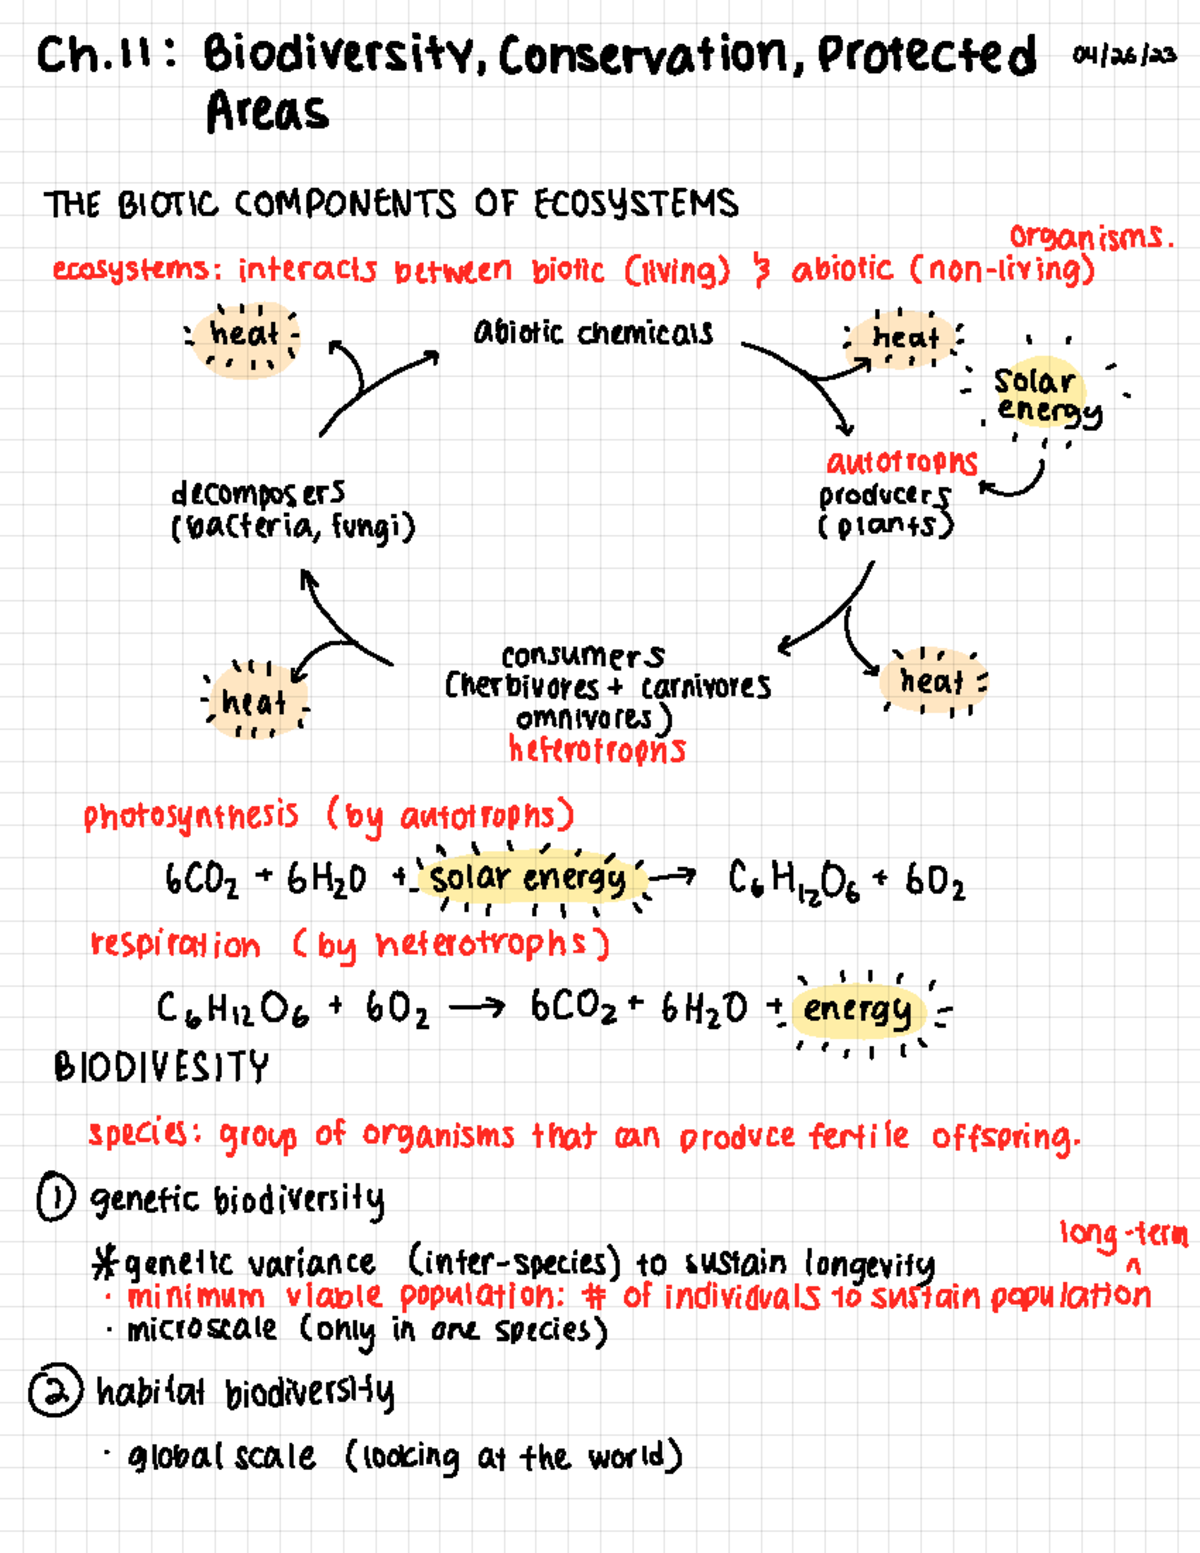 Ch.11: Biodiversity, Conservation, Protected 04/26/23
Areas
THE BIOTIC COMPONENTS OF ECOSYSTEMS
organisms.
ecosystems: interacts between biotic (living) & abiotic (non-living)
heat
abiotic chemicals
heat
solar
energy
autotrophs
producers
(plants)
decomposers
(bacteria, fungi)
consumers
(herbivores + carnivores
omnivores)
heterotrophs
heat
heat
photosynthesis (by autotrophs)
6CO₂ + 6H₂O + solar energy → C₆H₁₂O₆ + 6O₂
respiration (by heterotrophs)
C₆H₁₂O₆ + 6O₂ → 6CO₂ + 6H₂O + energy
BIODIVESITY
species: group of organisms that can produce fertile offspring.
① genetic biodiversity
long-term
* genetic variance (inter-species) to sustain longevity ^
· minimum viable population: # of individuals to sustain population
· microscale (only in one species)
② habitat biodiversity
· global scale (looking at the world)